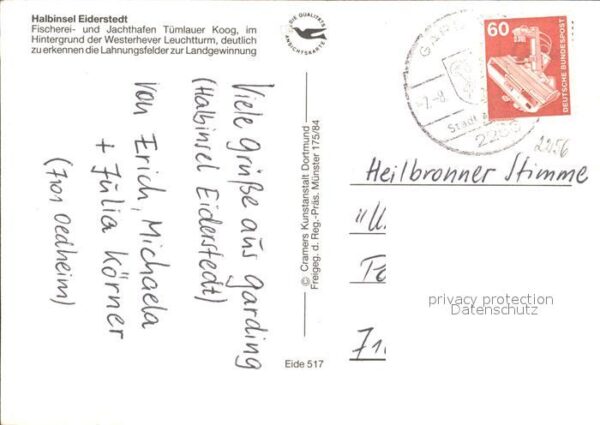 Halbinsel Eiderstedt
Fischerei- und Jachthafen Tümlauer Koog, im
Hintergrund der Westerhever Leuchtturm, deutlich
zu erkennen die Lahnungsfelder zur Landgewinnung
DIE QUALITÄTS
ANSICHTSKARTE
Viele Grüße aus Garding
(Halbinsel Eiderstedt)
von Erich, Michaela
+ Jülia Körner
(7101 Oedheim)
© Cramers Kunstanstalt Dortmund
Freigeg. d. Reg.-Präs. Münster 175/84
Eide 517
60
DEUTSCHE BUNDESPOST
2256
Heilbronner Stimme
privacy protection
Datenschutz